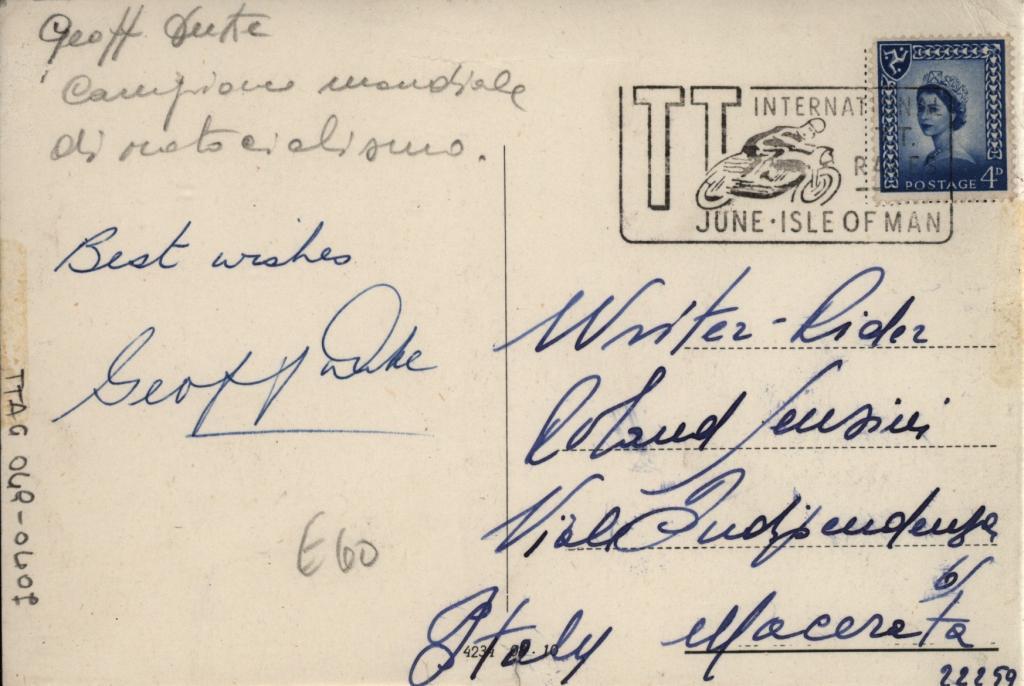 Geoff Duke
Campione mondiale
di motociclismo.
Best wishes
Geoff Duke
E60
TT INTERNATIONAL
T.T.
RACES
JUNE · ISLE OF MAN
POSTAGE 4D
Writer-Rider
Roland Sensini
Viale Indipendenza
6/
Italy Macerata
4234
22259